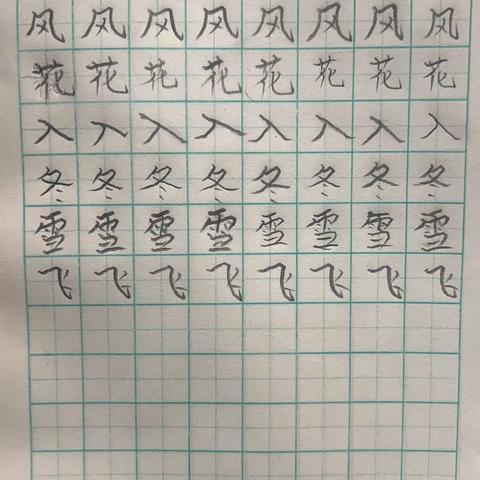 风风风风风风风风
花花花花花花花花
入入入入入入入入
冬冬冬冬冬冬冬冬
雪雪雪雪雪雪雪雪
飞飞飞飞飞飞飞飞